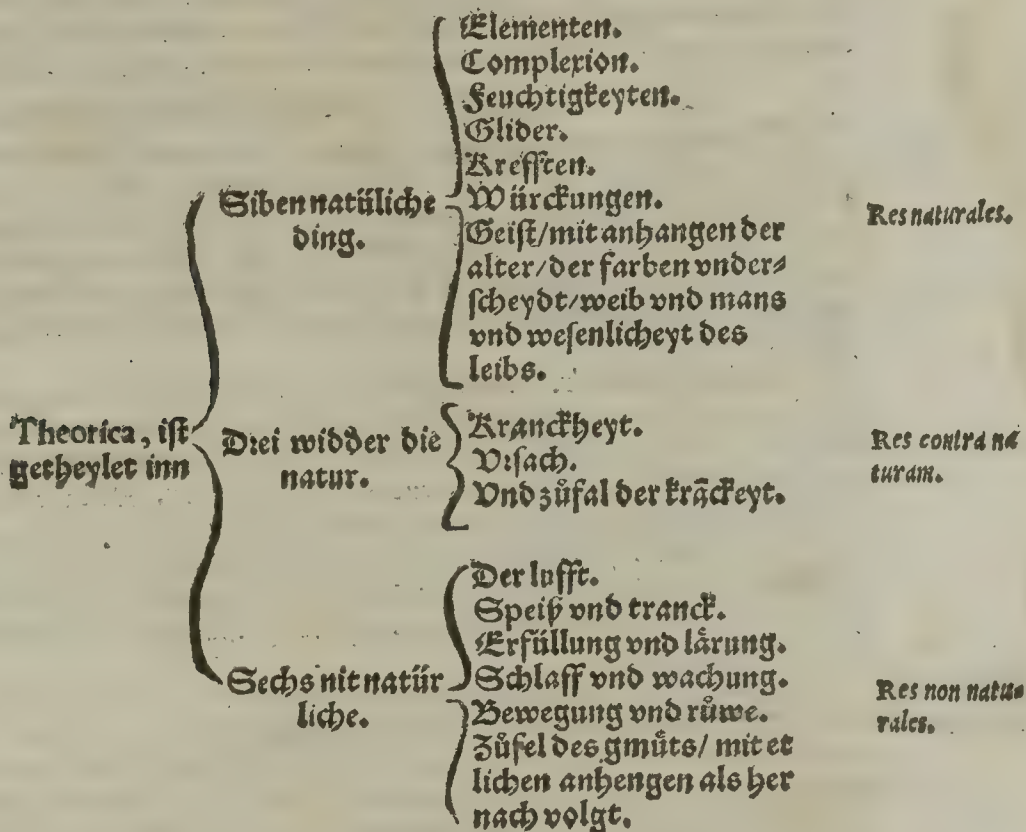 Theorica, ist
getheylet inn
Siben natüliche
ding.
Elementen.
Complexion.
Feuchtigkeyten.
Glider.
Krefften.
Würckungen.
Geist/mit anhangen der
alter/der farben vnder⸗
scheydt/weib vnd mans
vnd wesenlicheyt des
leibs.
Res naturales.
Drei widder die
natur.
Kranckheyt.
Vrsach.
Vnd zůfal der krāckeyt.
Res contra na
turam.
Sechs nit natür
liche.
Der lufft.
Speiß vnd tranck.
Erfüllung vnd lärung.
Schlaff vnd wachung.
Bewegung vnd růwe.
Zůfel des gmüts/ mit et
lichen anhengen als her
nach volgt.
Res non natu⸗
rales.